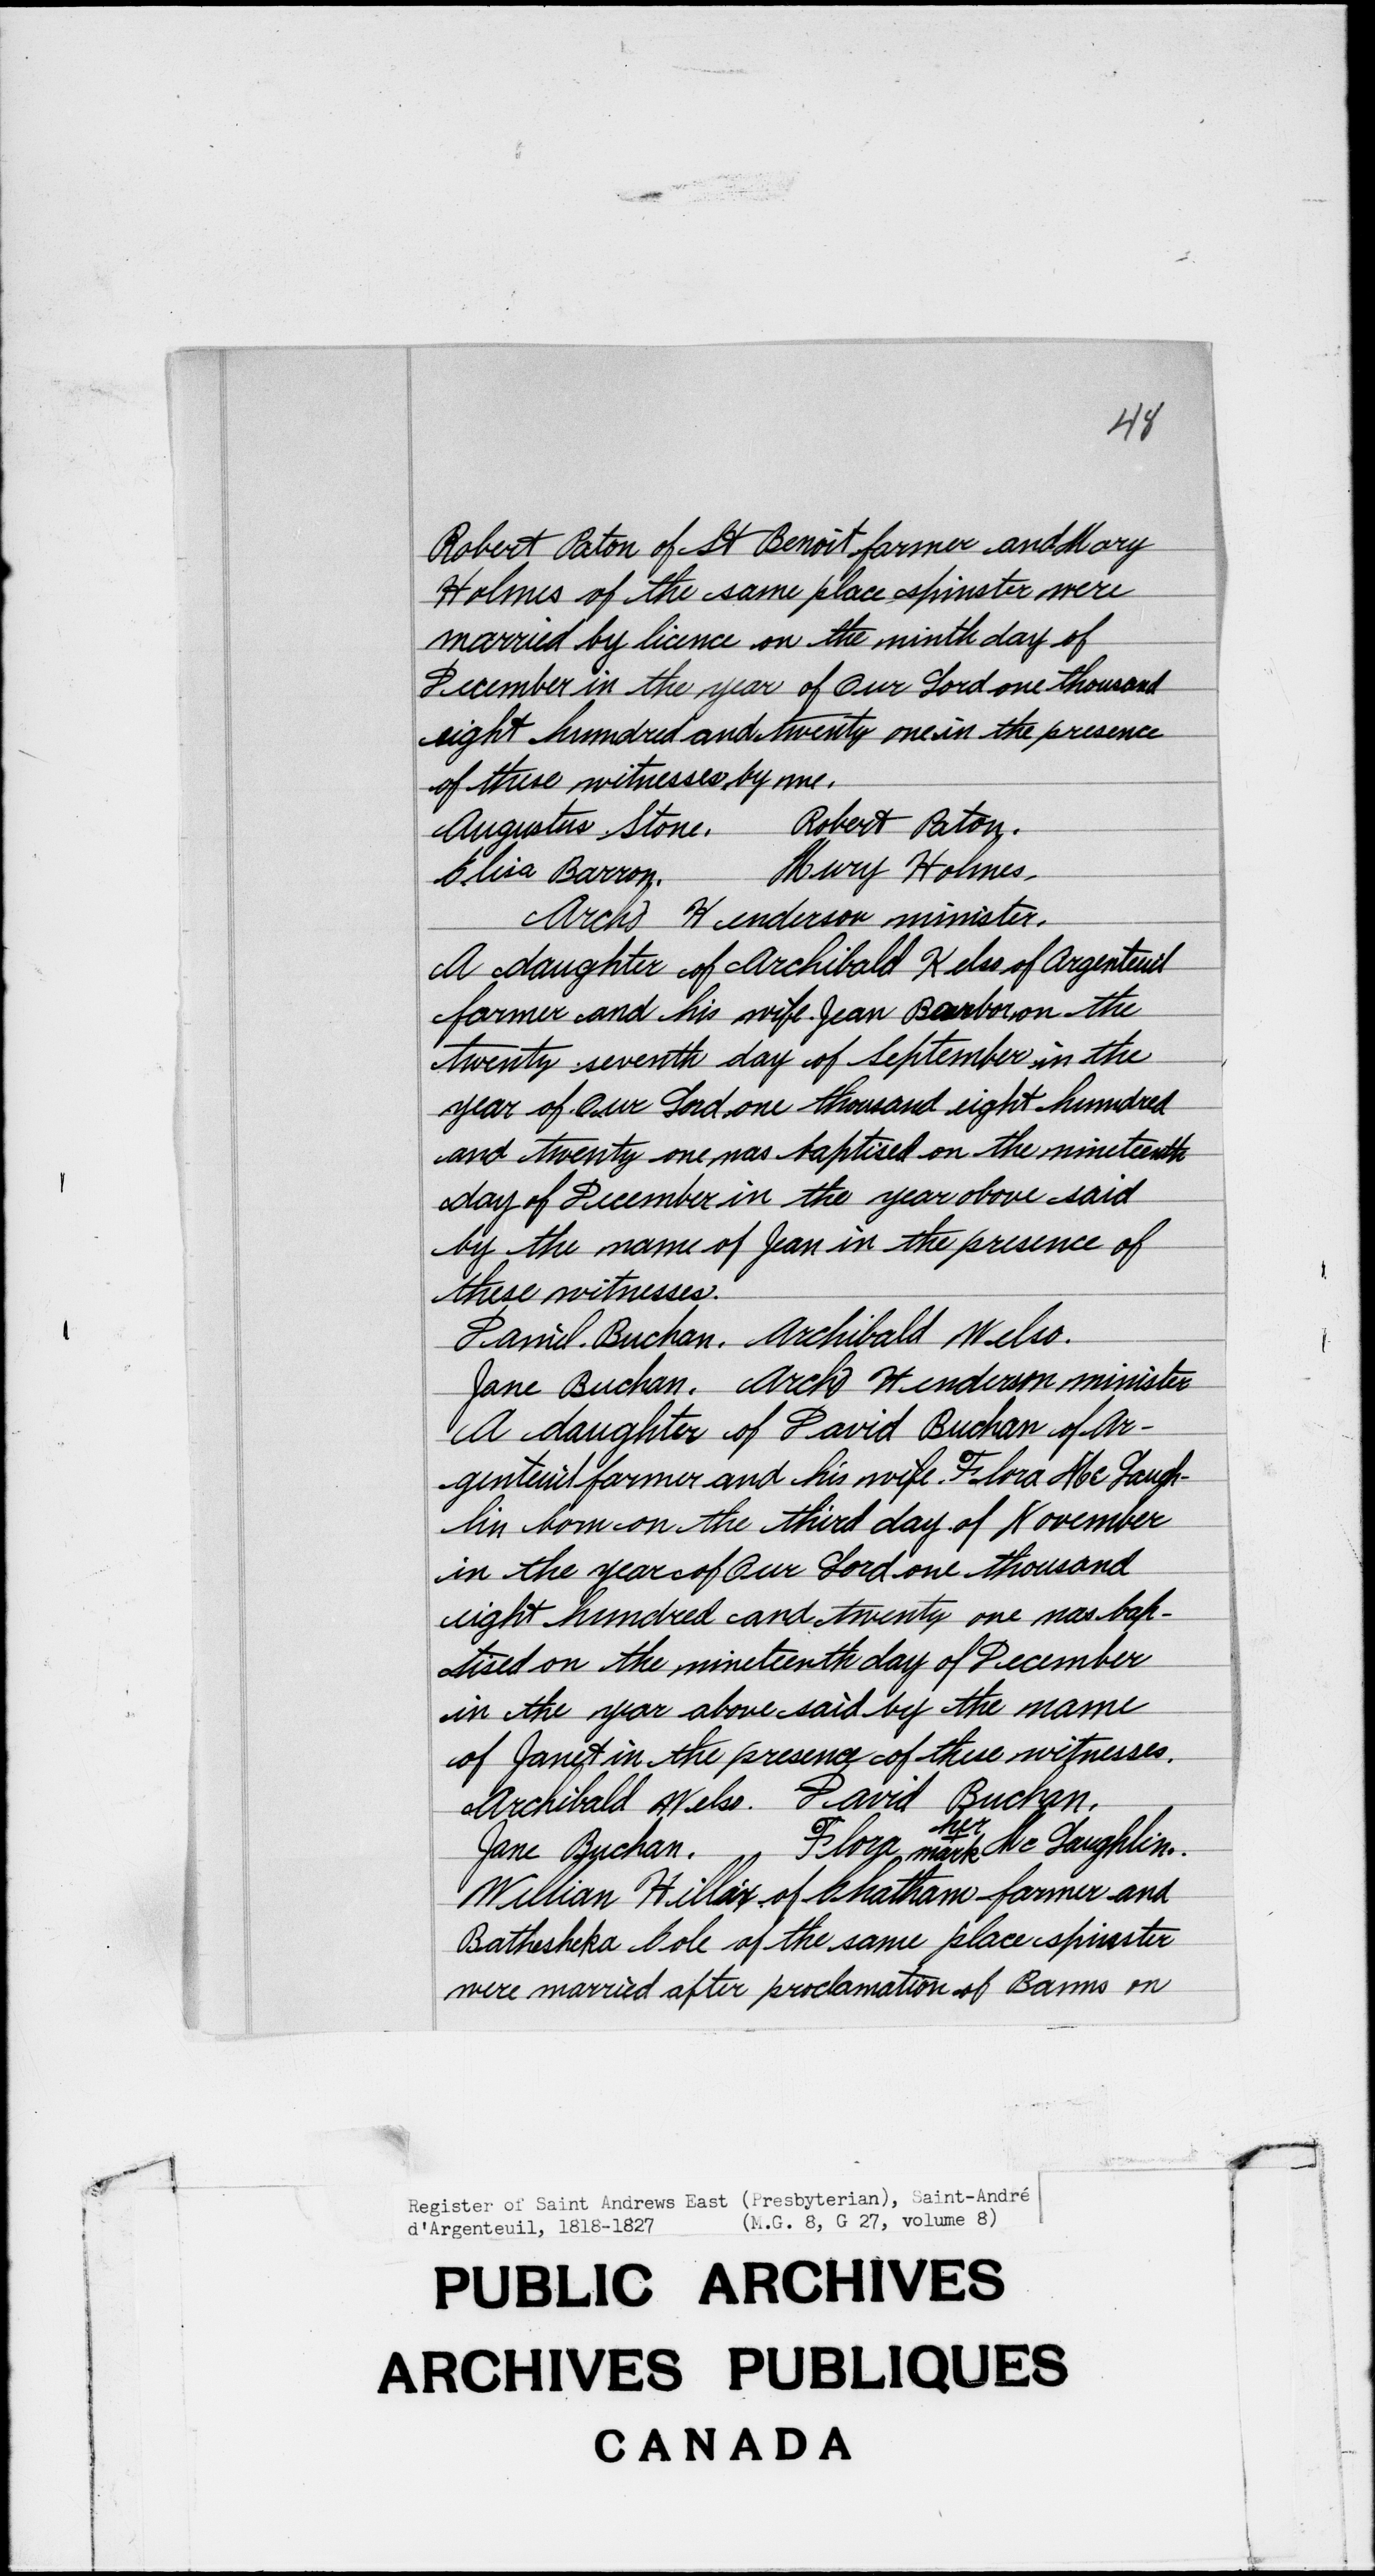 48
Robert Paton of St Benoit farmer and Mary
Holmes of the same place spinster were
married by licence on the ninth day of
December in the year of Our Lord one thousand
eight hundred and twenty one in the presence
of these witnesses by me.
Augustus Stone. Robert Paton.
Elisa Barron. Mury Holmes.
Archd Henderson minister.
A daughter of Archibald Kelso of Argenteuil
farmer and his wife Jean Barbor on the
twenty seventh day of September in the
year of Our Lord one thousand eight hundred
and twenty one was baptised on the nineteenth
day of December in the year above said
by the name of Jean in the presence of
these witnesses.
Daniel Buchan. Archibald Welso.
Jane Buchan. Archd Henderson minister
A daughter of David Buchan of Ar-
genteuil farmer and his wife Flora McLaugh-
lin born on the third day of November
in the year of Our Lord one thousand
eight hundred and twenty one was bap-
tised on the nineteenth day of December
in the year above said by the name
of Janet in the presence of these witnesses.
Archibald Welso. David Buchan.
Jane Buchan. Flora her mark McLaughlin.
Willian of Chatham farmer and
Bathesheka Cole of the same place spinster
were married after proclamation of Banns on
Register of Saint Andrews East (Presbyterian), Saint-André
d'Argenteuil, 1818-1827 (M.G. 8, G 27, volume 8)
PUBLIC ARCHIVES
ARCHIVES PUBLIQUES
CANADA